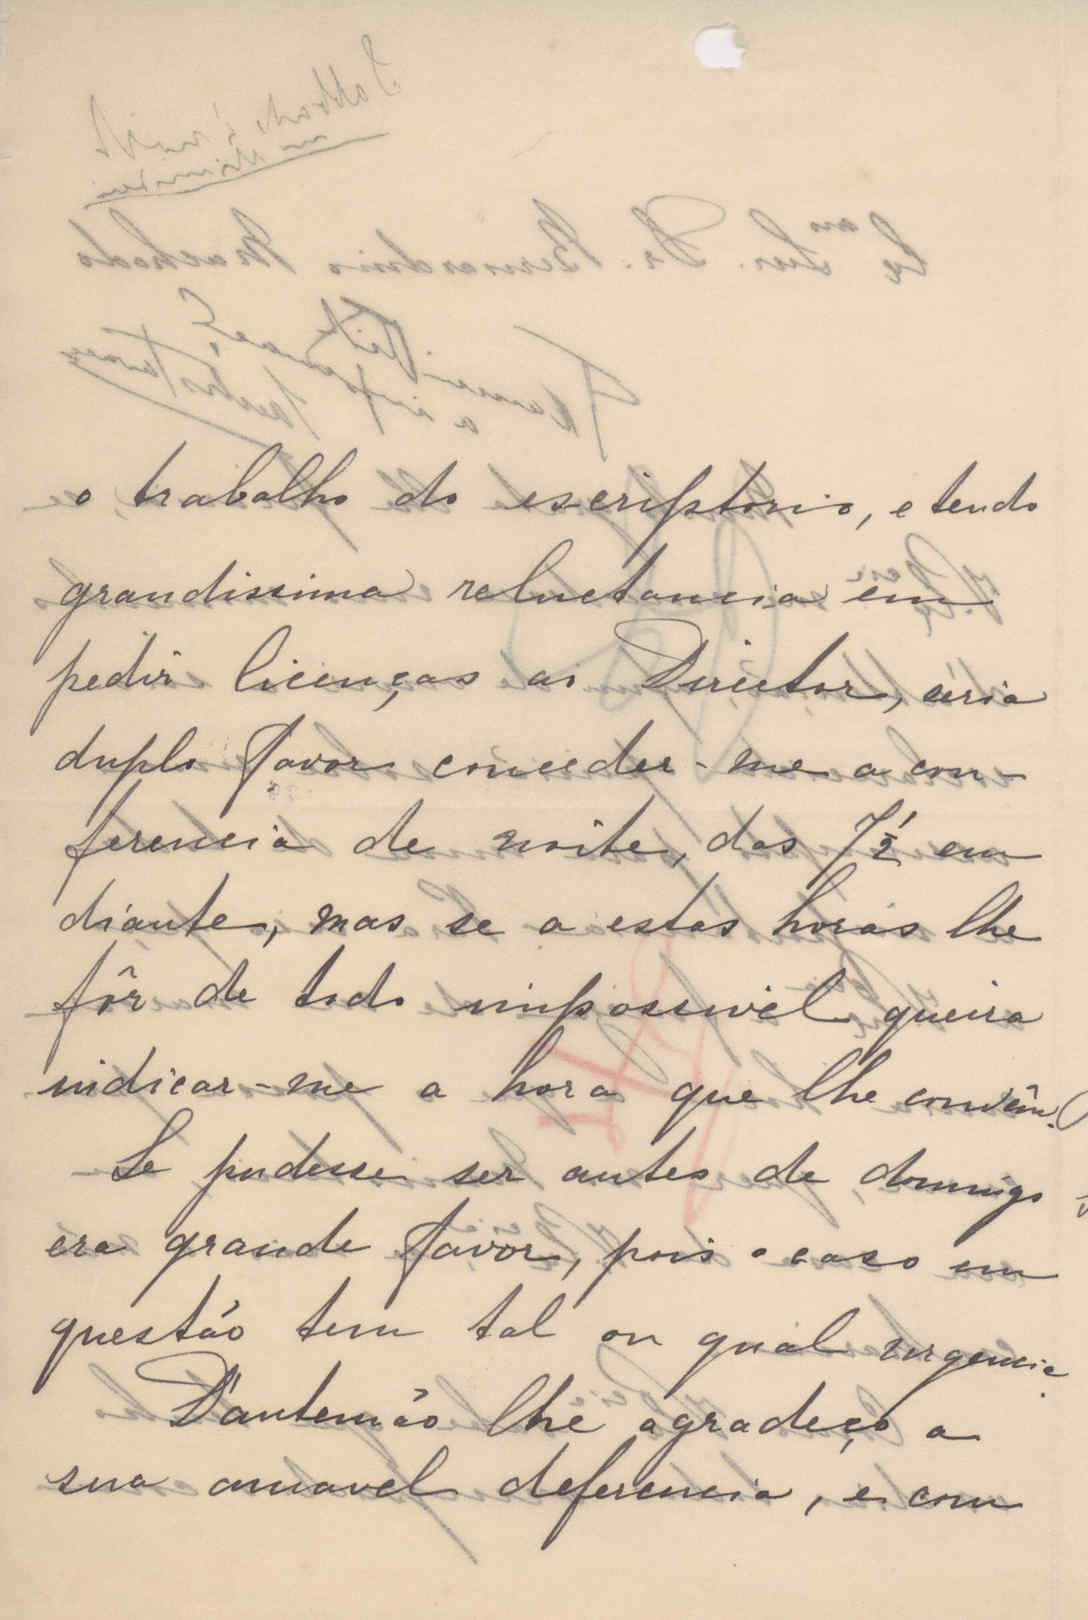 o trabalho do escriptorio, e tendo
grandissima reluctancia em
pedir licenças ao Director, seria
duplo favor conceder-me a con-
ferencia de noite, das 7 1/2 em
diante, mas se a estas horas lhe
fôr de todo impossivel queira
indicar-me a hora que lhe convêm.
Se pudesse ser antes de domingo
era grande favor, pois o caso em
questão tem tal ou qual urgencia.
D'antemão lhe agradeço a
sua amavel deferencia, e com